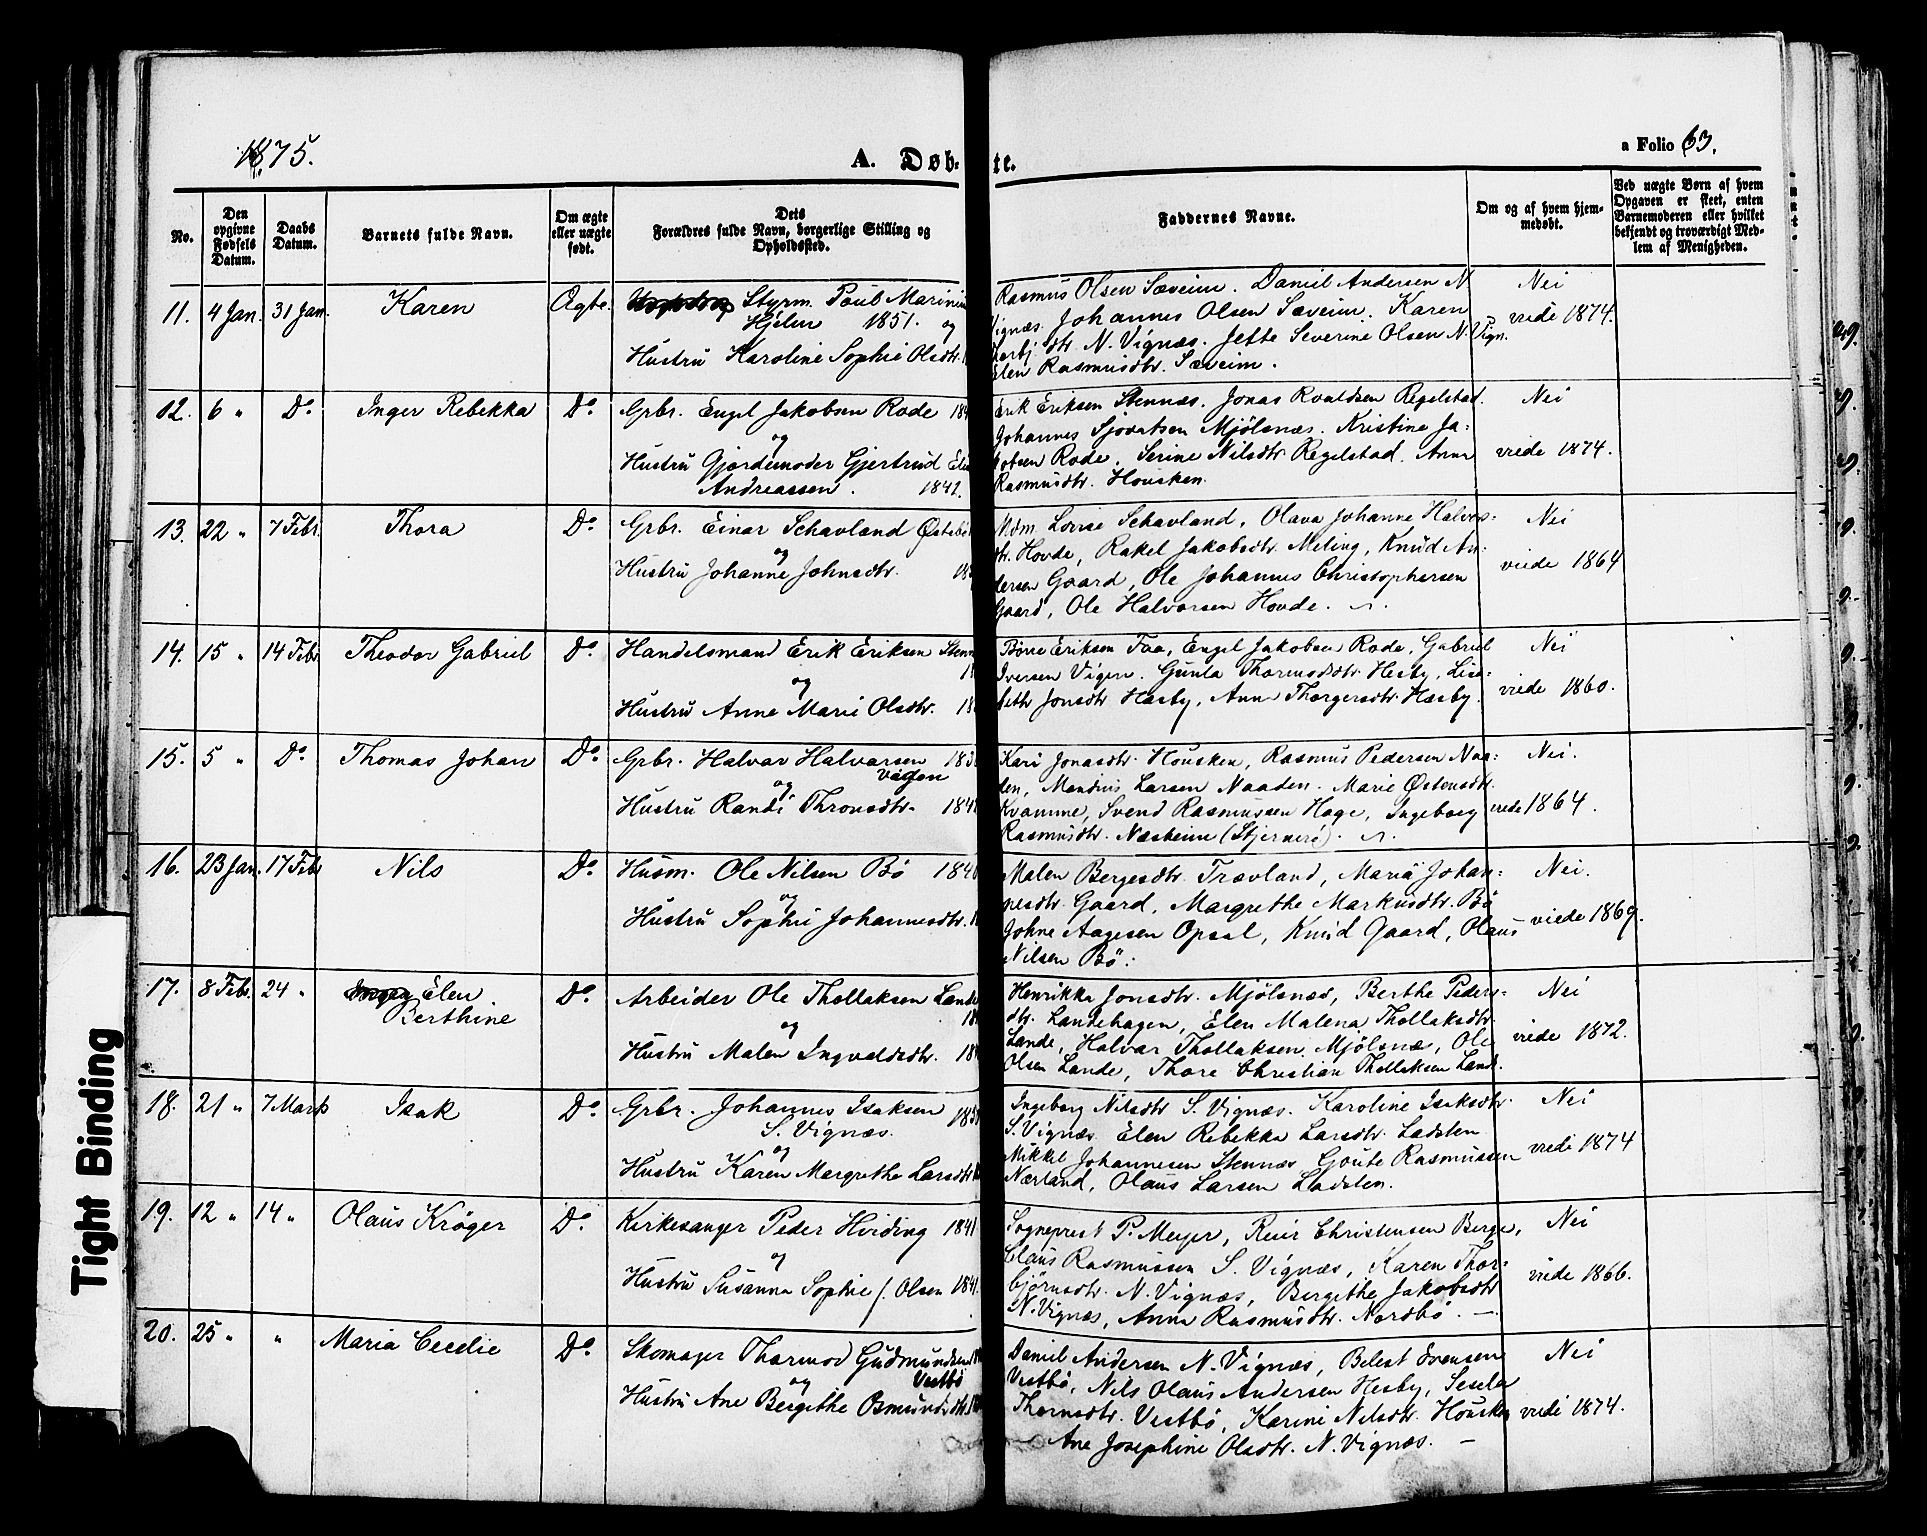 1875.
A. Døbte.
a Folio 63.
No.
Den opgivne Fødsels Datum.
Daabs Datum.
Barnets fulde Navn.
Om ægte eller uægte født.
Dets Forældres fulde Navn, borgerlige Stilling og Opholdssted.
Faddernes Navne.
Om og af hvem hjemmedøbt.
Ved uægte Børn af hvem Opgaven er skeet, enten Barnemoderen eller hvilket bekjendt og troværdigt Medlem af Menigheden.
11. 4 Jan. 31 Jan. Karen Ægte. Styrm. Poul Marinius
Hjelm 1851. og
Hustru Karoline Sophie Olsdtr.
Rasmus Olsen Sæveim. Daniel Andersen N
Vignæs. Johannes Olsen Sæveim. Karen
dtr. N. Vignæs. Jette Severine Olsen N. Vign.
Elen Rasmusdtr. Sæveim.
Nei
viede 1874.
12. 6 " Do. Inger Rebekka Do. Grbr. Engel Jakobsen Rode
og
Hustru Gjordemoder Gjertrud
Andreassen. 1842.
Erik Eriksen Stennæs. Jonas Roaldsen Regelstad.
Johannes Sjovatsen Mjölsnæs. Kristine Ja-
kobsen Rode. Serine Nilsdtr. Regelstad. Anna
Rasmusdtr. Housken.
Nei
viede 1874.
13. 22 " 7 Febr. Thora Do. Grbr. Einar Schavland
og
Hustru Johanne Johnsdtr.
Mdm. Lovise Schavland, Olava Johanne Halvors-
dtr. Hovde, Rakel Jakobsdtr. Meling, Knud An-
dersen Gaard, Ole Johannes Christophersen
Gaard, Ole Halvorsen Hovde.
Nei
viede 1864
14. 15 " 14 Febr. Theodor Gabriel Do. Handelsmand Erik Eriksen
og
Hustru Anne Marie Olsdtr.
Børre Eriksen Faa, Engel Jakobsen Rode, Gabriel
Iversen Vigen. Gunla Thormodsdtr. Hesby, Lise-
beth Jonsdtr Hæsby, Anna Thorgersdtr. Hæsby.
Nei
viede 1860.
15. 5 " Do. Thomas Johan Do. Grbr. Halvar Halvarsen
Vågen
og
Hustru Randi Thronsdtr.
Kari Jonasdtr. Housken, Rasmus Pedersen Naa-
den, Mandius Larsen Naaden. Marie Østensdtr.
Kvamme, Svend Rasmussen Hage, Ingeborg
Rasmusdtr. Næsheim (Stjernerö).
Nei.
viede 1864.
16. 23 Jan. 17 Febr Nils Do. Husm. Ole Nilsen Bö
og
Hustru Sophie Johannesdtr.
Malen Bergesdtr. Trævland, Maria Johan-
nesdtr. Gaard, Margrethe Markusdtr. Bö
Johne Aagesen Opsal, Knud Gaard, Olaus
Nilsen Bö.
Nei.
viede 1869.
17. 8 Febr. 24 " Elen
Berthine Do. Arbeider Ole Thollaksen Lande
og
Hustru Malen Ingvaldsdtr.
Henrikka Jonsdtr. Mjölsnæs, Berthe Peders-
dtr. Landehagen, Elen Malena Thollaksdtr.
Lande, Halvar Thollaksen Mjölsnæs, Ole
Olsen Lande, Thore Christian Thollaksen Lande.
Nei
viede 1872.
18. 21 " 7 Marts Isak Do. Grbr. Johannes Isaksen
S. Vignæs.
og
Hustru Karen Margrethe Larsdtr.
Ingeborg Nilsdtr S. Vignæs. Karoline Isaksdtr.
S. Vignæs. Elen Rebekka Larsdtr. Ladsten
Mikkel Johannesen Stennæs Goute Rasmussen
Nærland, Olaus Larsen Ladsten.
Nei
viede 1874
19. 12 " 14 " Olaus Kröger Do. Kirkesanger Peder Hviding 1841
og
Hustru Susanna Sophie f. Olsen 1841.
Sogneprest P. Meyer, Reier Christensen Berge,
Claus Rasmussen S. Vignæs, Karen Thor-
björnsdtr. N. Vignæs, Bergithe Jakobsdtr
N. Vignæs, Anna Rasmusdtr. Nordbö.
Nei
viede 1866.
20. 25 " " Maria Cecilie Do. Skomager Thormod Gudmundsen
Vestbö
og
Hustru Ane Bergithe
Daniel Andersen N. Vignæs, Belest Svensen
Vestbö, Nils Olaus Andersen Hesby, Sesela
Thornsdtr. Vestbö, Karine Nilsdtr. Housken
Ane Josephine Olsdtr. N. Vignæs.
Nei
viede 1874.
Tight Binding